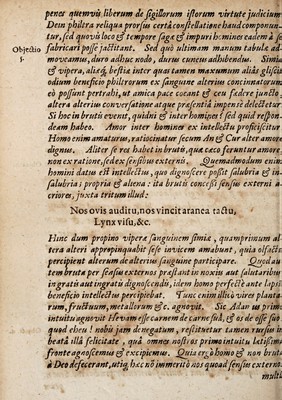 penes quemvis liberum de sigillorum istorum virtute judicium
Dein philtra reliqua prorsus certâ constellatione haud componuntur,
sed quovis loco & tempore sagæ & impuri homines eadem à se
fabricari posse jactitant. Sed quò ultimam manum tabulæ ad
Objectio
moveamus, duro adhuc nodo, durus cuneus adhibendus. Simia
1.
& vipera, aliaq́ bestiæ inter quas tamen maximum aliàs gliscit
odium beneficio philtrorum ex sanguine alterius concinnatorum
eò possunt pertrahi, ut amica pace coeant & ceu fœdere juncto
altera alterius conversatione atque præsentiâ impensè delectetur
Si hoc in brutis evenit, quidni & inter homines? sed quid respondeam
habeo. Amor inter homines ex intellectu proficiscitur
Homo enim amaturus, ratiocinatur secum An & Cur alter amore
dignus. Aliter se res habet in brutis, quæ cæco feruntur amore
non ex ratione, sed ex sensibus externis. Quemadmodum enim
homini datus est intellectus, quo dignoscere possit salubria & insalubria;
propria & aliena: ita brutis concessi sensus externi acriores,
juxta tritum illud:
Nos ovis auditu, nos vincit aranea tactu,
Lynx visu, &c.
Hinc dum propino viperæ sanguinem simiæ, quamprimum altera
alteri appropinquabit sese invicem amabunt, quia olfactu
percipient alterum de alterius sanguine participare. Quod autem
bruta per sensus externos præstant in noxiis aut salutaribus
ingratis aut gratis dignoscendis, idem homo perfectè ante lapsum
beneficio intellectus percipiebat. Tunc enim illius vires plantarum,
fructuum, metallorum &c. agnovit. Sic Adam primo
intuitu agnovit Hevam esse carnem de carne suâ, & os de osse suo
quod eheu! nobis jam denegatum, restituetur tamen rursus in
beatâ illâ felicitate, quâ omnes nostros primo intuitu lætissimâ
fronte agnoscemus & excipiemus. Quia ergò homo & non bruta
à Deo defecerant, utiq; hæc nô immeritò nos quoad sensus externos
multis